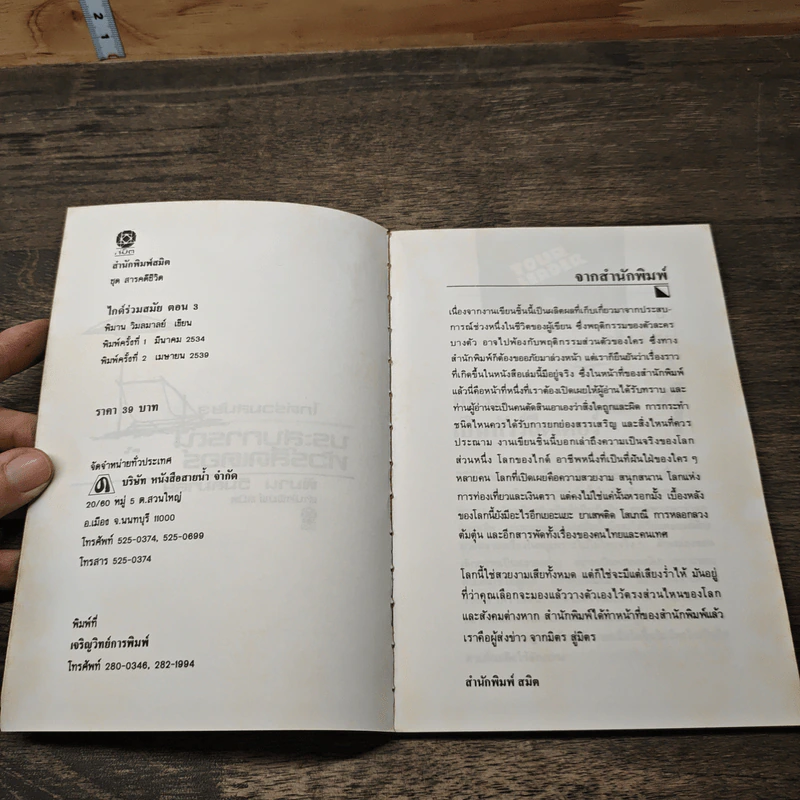 2
1
สมิต
สำนักพิมพ์สมิต
ชุด สารคดีชีวิต
ไกด์ร่วมสมัย ตอน 3
พิมาน วิมลมาลย์ เขียน
พิมพ์ครั้งที่ 1 มีนาคม 2534
พิมพ์ครั้งที่ 2 เมษายน 2539
ราคา 39 บาท
จัดจำหน่ายทั่วประเทศ
บริษัท หนังสือสายน้ำ จำกัด
20/60 หมู่ 5 ต.สวนใหญ่
อ.เมือง จ.นนทบุรี 11000
โทรศัพท์ 525-0374, 525-0699
โทรสาร 525-0374
พิมพ์ที่
เจริญวิทย์การพิมพ์
โทรศัพท์ 280-0346, 282-1994
จากสำนักพิมพ์
เนื่องจากงานเขียนชิ้นนี้เป็นผลิตผลที่เก็บเกี่ยวมาจากประสบ-
การณ์ช่วงหนึ่งในชีวิตของผู้เขียน ซึ่งพฤติกรรมของตัวละคร
บางตัว อาจไปพ้องกับพฤติกรรมส่วนตัวของใคร ซึ่งทาง
สำนักพิมพ์ก็ต้องขออภัยมาล่วงหน้า แต่เราก็ยืนยันว่าเรื่องราว
ที่เกิดขึ้นในหนังสือเล่มนี้มีอยู่จริง ซึ่งในหน้าที่ของสำนักพิมพ์
แล้วนี่คือหน้าที่หนึ่งที่เราต้องเปิดเผยให้ผู้อ่านได้รับทราบ และ
ท่านผู้อ่านจะเป็นคนตัดสินเอาเองว่าสิ่งใดถูกและผิด การกระทำ
ชนิดไหนควรได้รับการยกย่องสรรเสริญ และสิ่งไหนที่ควร
ประณาม งานเขียนชิ้นนี้บอกเล่าถึงความเป็นจริงของโลก
ส่วนหนึ่ง โลกของไกด์ อาชีพหนึ่งที่เป็นที่ฝันใฝ่ของใคร ๆ
หลายคน โลกที่เปิดเผยคือความสวยงาม สนุกสนาน โลกแห่ง
การท่องเที่ยวและเงินตรา แต่คงไม่ใช่แค่นั้นหรอกมั้ง เบื้องหลัง
ของโลกนี้ยังมีอะไรอีกเยอะแยะ ยาเสพติด โสเภณี การหลอกลวง
ต้มตุ๋น และอีกสารพัดทั้งเรื่องของคนไทยและคนเทศ
โลกนี้ใช่สวยงามเสียทั้งหมด แต่ก็ใช่จะมีแต่เสียงร่ำไห้ มันอยู่
ที่ว่าคุณเลือกจะมองแล้ววางตัวเองไว้ตรงส่วนไหนของโลก
และสังคมต่างหาก สำนักพิมพ์ได้ทำหน้าที่ของสำนักพิมพ์แล้ว
เราคือผู้ส่งข่าว จากมิตร สู่มิตร
สำนักพิมพ์ สมิต